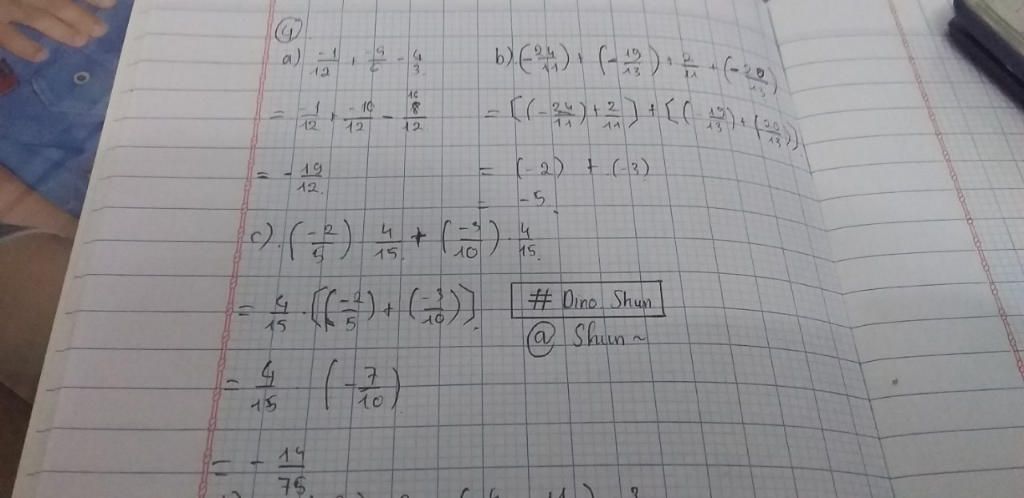 4
a) -1/12 + -5/6 - 4/3
= -1/12 + -10/12 - 16/12
= - 19/12.
b) (-24/11) + (-19/13) + 2/11 + (-20/13)
= [(-24/11) + 2/11] + [(-19/13) + (20/13)].
= (-2) + (-3)
= -5.
c) (-2/5) 4/15 + (-3/10) . 4/15.
= 4/15 . [(-2/5) + (-3/10)].
= 4/15 (-7/10)
= - 14/75
# Dino Shun
@ Shun ~